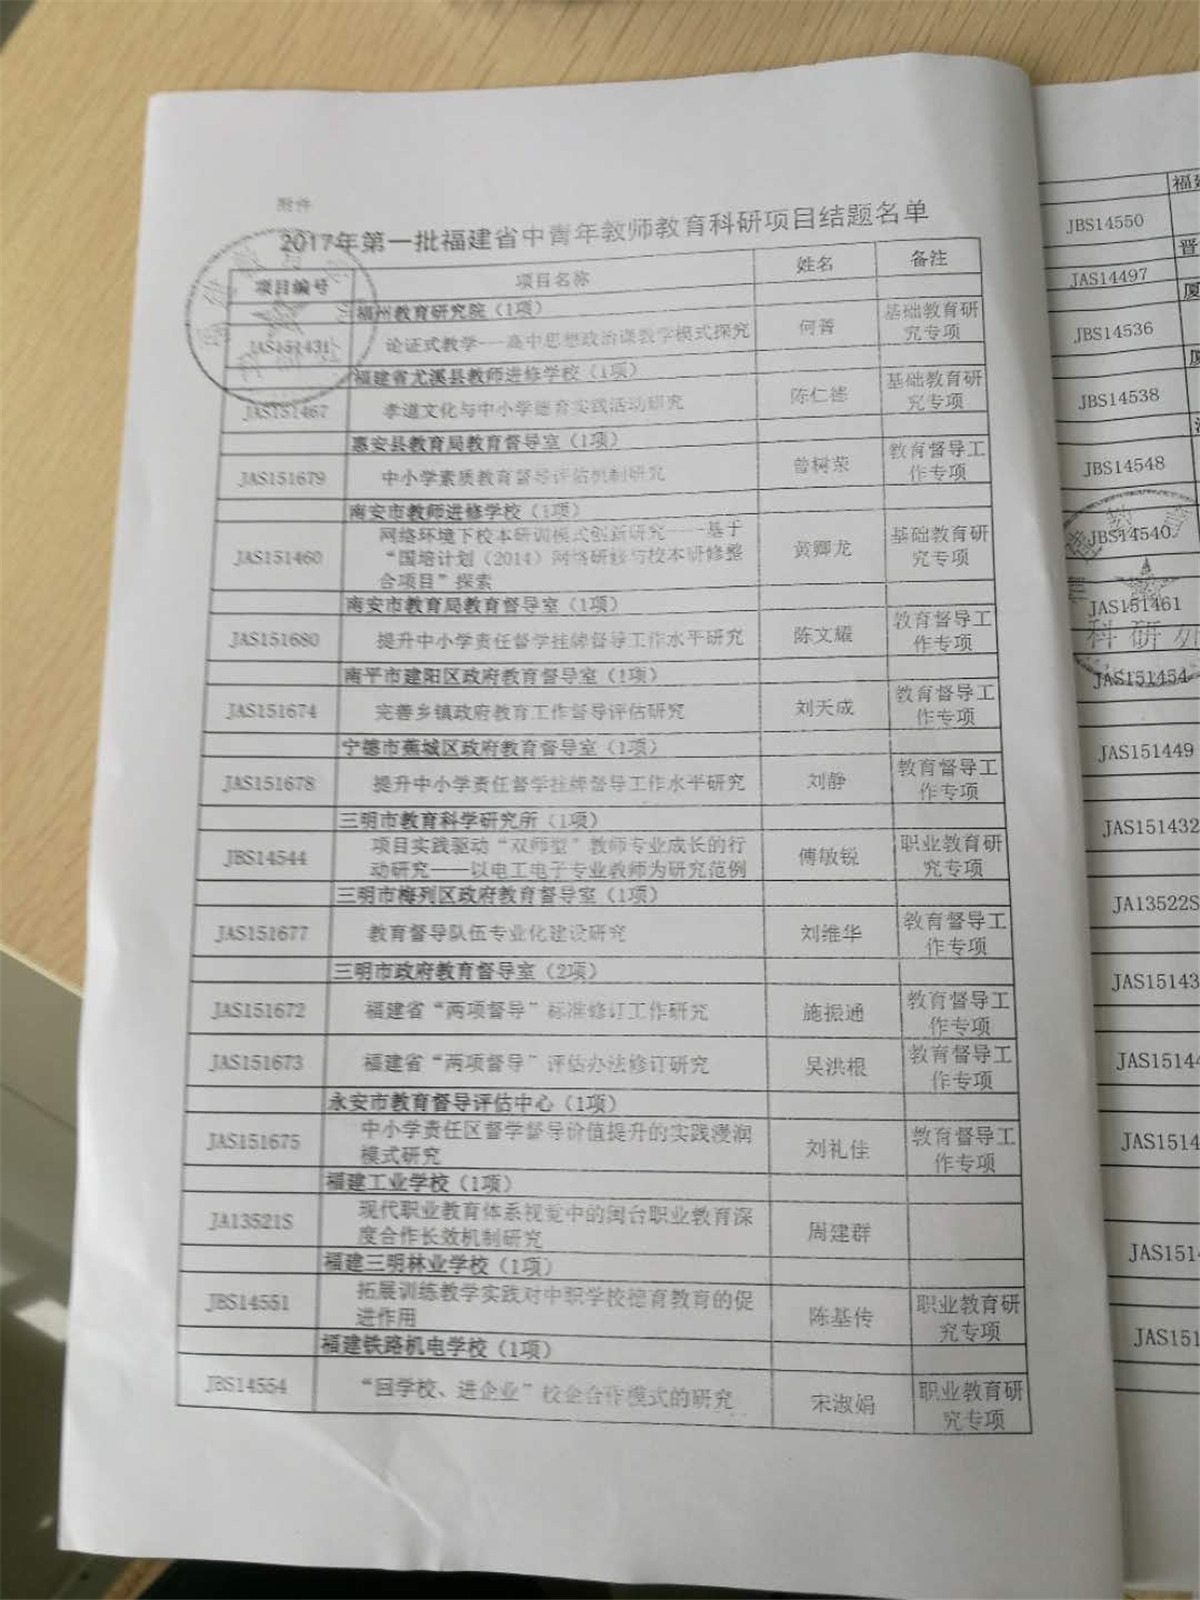 附件
2017年第一批福建省中青年教师教育科研项目结题名单
项目编号 项目名称 姓名 备注
福州教育研究院（1项）
JAS151431 论证式教学——高中思想政治课教学模式探究 何菁 基础教育研
究专项
福建省尤溪县教师进修学校（1项）
JAS151467 孝道文化与中小学德育实践活动研究 陈仁德 基础教育研
究专项
惠安县教育局教育督导室（1项）
JAS151679 中小学素质教育督导评估机制研究 曾树荣 教育督导工
作专项
南安市教师进修学校（1项）
网络环境下校本研训模式创新研究——基于
JAS151460 “国培计划（2014）网络研修与校本研修整 黄卿龙 基础教育研
合项目”探索 究专项
南安市教育局教育督导室（1项）
JAS151680 提升中小学责任督学挂牌督导工作水平研究 陈文耀 教育督导工
作专项
南平市建阳区政府教育督导室（1项）
JAS151674 完善乡镇政府教育工作督导评估研究 刘天成 教育督导工
作专项
宁德市蕉城区政府教育督导室（1项）
JAS151678 提升中小学责任督学挂牌督导工作水平研究 刘静 教育督导工
作专项
三明市教育科学研究所（1项）
JBS14544 项目实践驱动“双师型”教师专业成长的行 傅敏锐 职业教育研
动研究——以电工电子专业教师为研究范例 究专项
三明市梅列区政府教育督导室（1项）
JAS151677 教育督导队伍专业化建设研究 刘维华 教育督导工
作专项
三明市政府教育督导室（2项）
JAS151672 福建省“两项督导”标准修订工作研究 施振通 教育督导工
作专项
JAS151673 福建省“两项督导”评估办法修订研究 吴洪根 教育督导工
作专项
永安市教育督导评估中心（1项）
JAS151675 中小学责任区督学督导价值提升的实践浸润 刘礼佳 教育督导工
模式研究 作专项
福建工业学校（1项）
JA13521S 现代职业教育体系视觉中的闽台职业教育深 周建群
度合作长效机制研究
福建三明林业学校（1项）
JBS14551 拓展训练教学实践对中职学校德育教育的促 陈基传 职业教育研
进作用 究专项
福建铁路机电学校（1项）
JBS14554 “回学校、进企业”校企合作模式的研究 宋淑娟 职业教育研
究专项
福建
JBS14550
晋
JAS14497
厦
JBS14536
JBS14538
JBS14548
JBS14540
JAS151461
科研
JAS151454
JAS151449
JAS151432
JA13522S
JAS15143
JAS15144
JAS1514
JAS151
JAS151